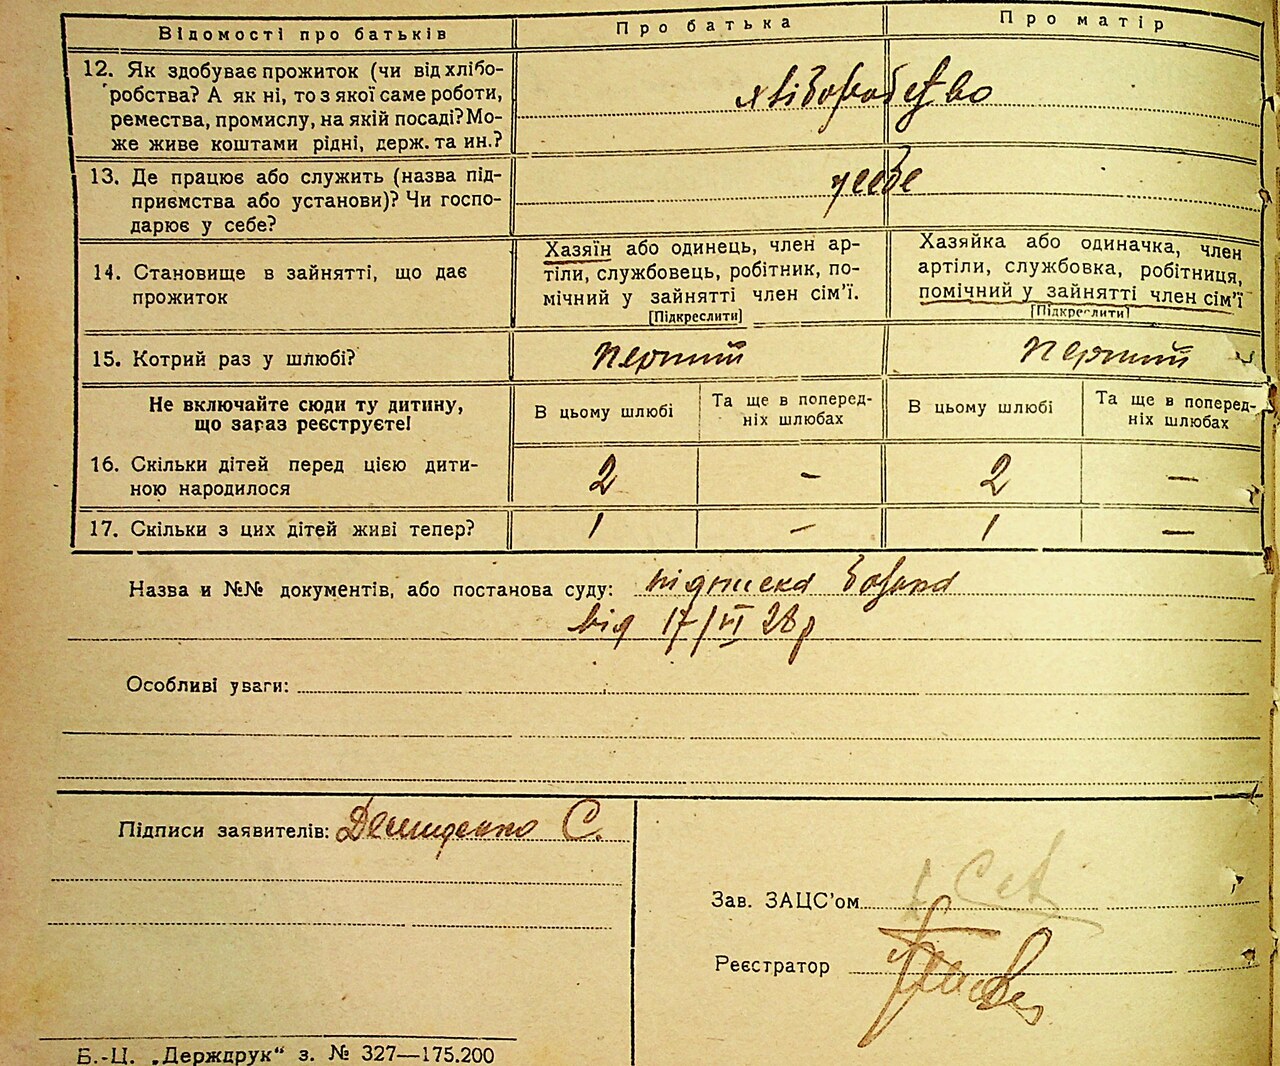 Відомості про батьків Про батька Про матір
12. Як здобуває прожиток (чи від хлібо-
робства? А як ні, то з якої саме роботи,
ремества, промислу, на якій посаді? Мо-
же живе коштами рідні, держ. та ин.?
хліборобство
13. Де працює або служить (назва під-
приємства або установи)? Чи госпо-
дарює у себе?
у себе
14. Становище в зайнятті, що дає
прожиток
Хазяїн або одинець, член ар-
тіли, службовець, робітник, по-
мічний у зайнятті член сім’ї.
[Підкреслити]
Хазяйка або одиначка, член
артіли, службовка, робітниця,
помічний у зайнятті член сім’ї
[Підкреслити]
15. Котрий раз у шлюбі? перший перший
Не включайте сюди ту дитину,
що зараз реєструєте!
В цьому шлюбі
Та ще в поперед-
ніх шлюбах
В цьому шлюбі
Та ще в поперед-
ніх шлюбах
16. Скільки дітей перед цією дити-
ною народилося
2 - 2 —
17. Скільки з цих дітей живі тепер? 1 - 1 —
Назва и №№ документів, або постанова суду: підписка
від 17/VI 28р
Особливі уваги:
Підписи заявителів: Демиденко С.
Зав. ЗАЦС’ом
Реєстратор
Б.-Ц. „Держдрук“ з. № 327—175.200